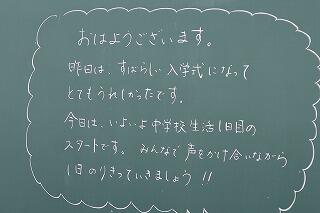 おはようございます。
昨日は、すばらしい入学式になって
とてもうれしかったです。
今日は、いよいよ中学校生活1日目の
スタートです。 みんなで声をかけ合いながら
1日のりきっていきましょう!!